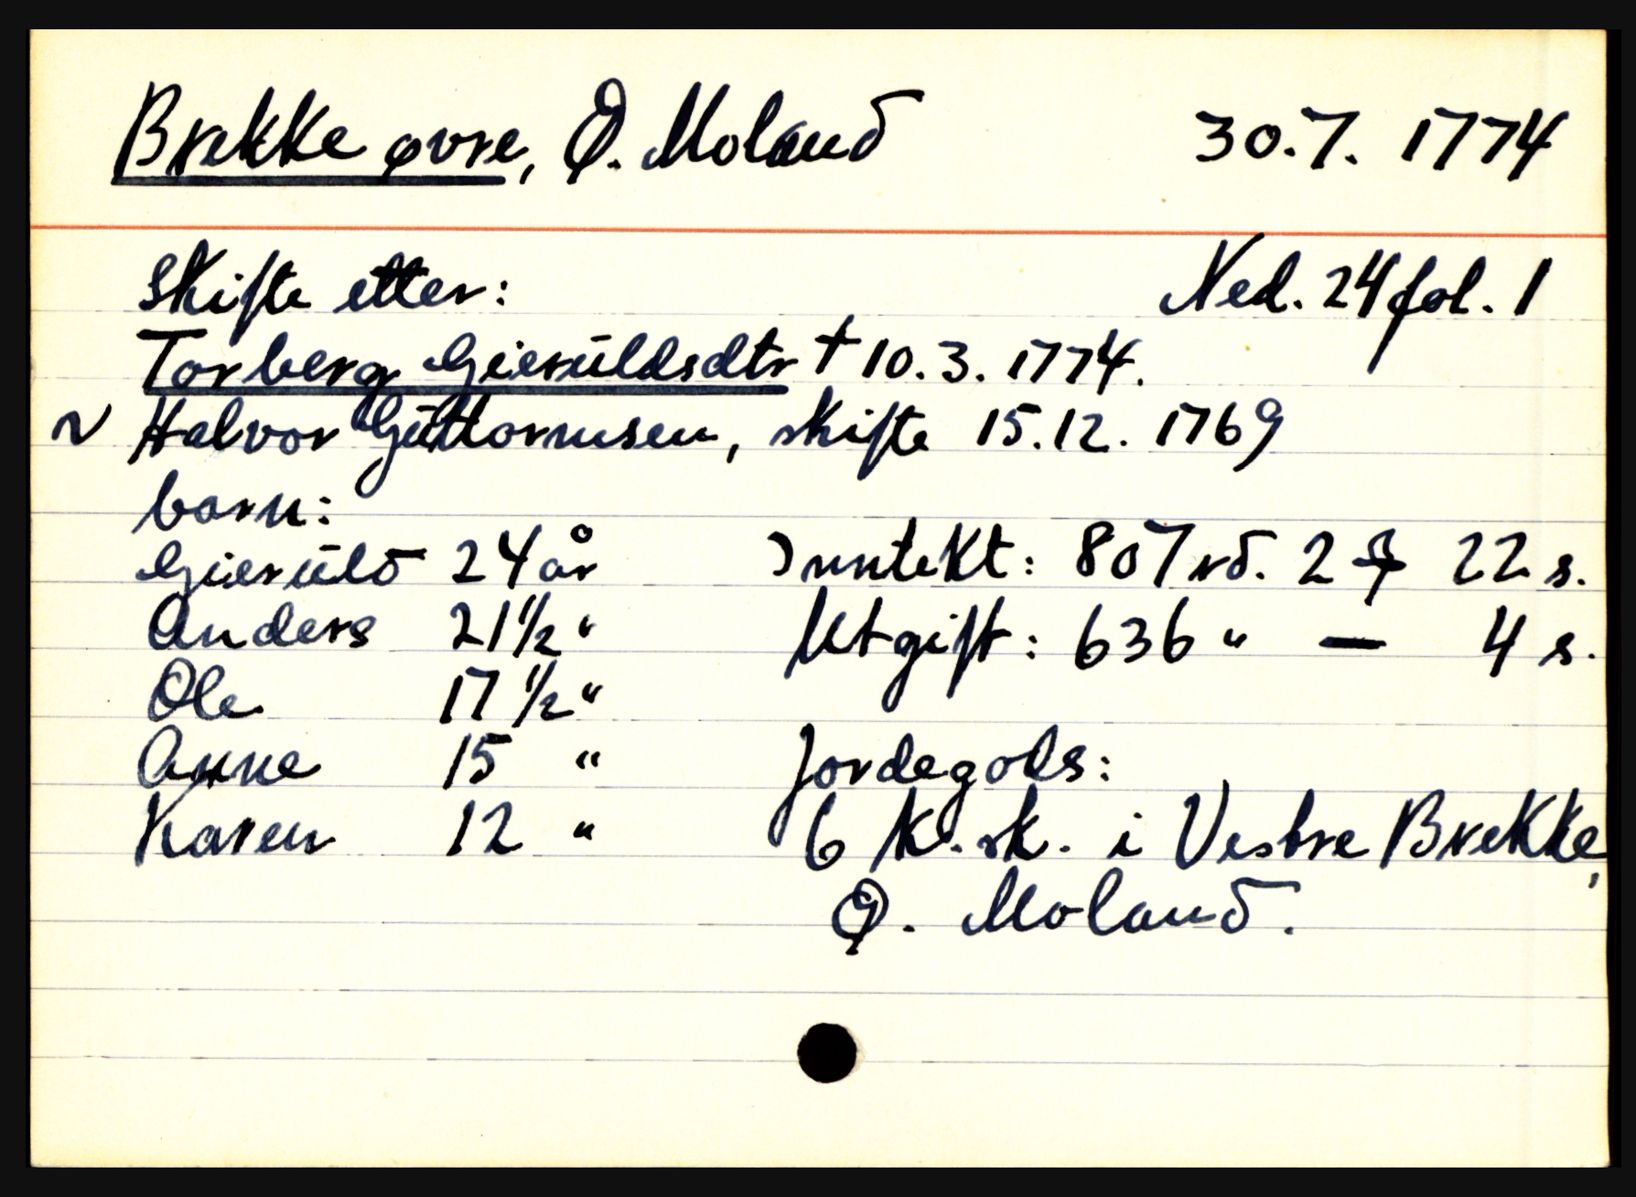 Brekke øvre, Ø. Moland 30.7. 1774
Skifte etter: Ned. 24 fol. 1
Torberg Gieruldsdtr † 10.3. 1774.
~ Halvor Guttormsen, skifte 15.12. 1769
barn:
Gieruld 24 år Inntekt: 807 rd. 2 22 s.
Anders 21 1/2 " Utgift: 636 " — 4 s.
Ole 17 1/2 "
Anne 15 " Jordegods:
Karen 12 " 6 K. sk. i Vestre Brekke,
Ø. Moland.